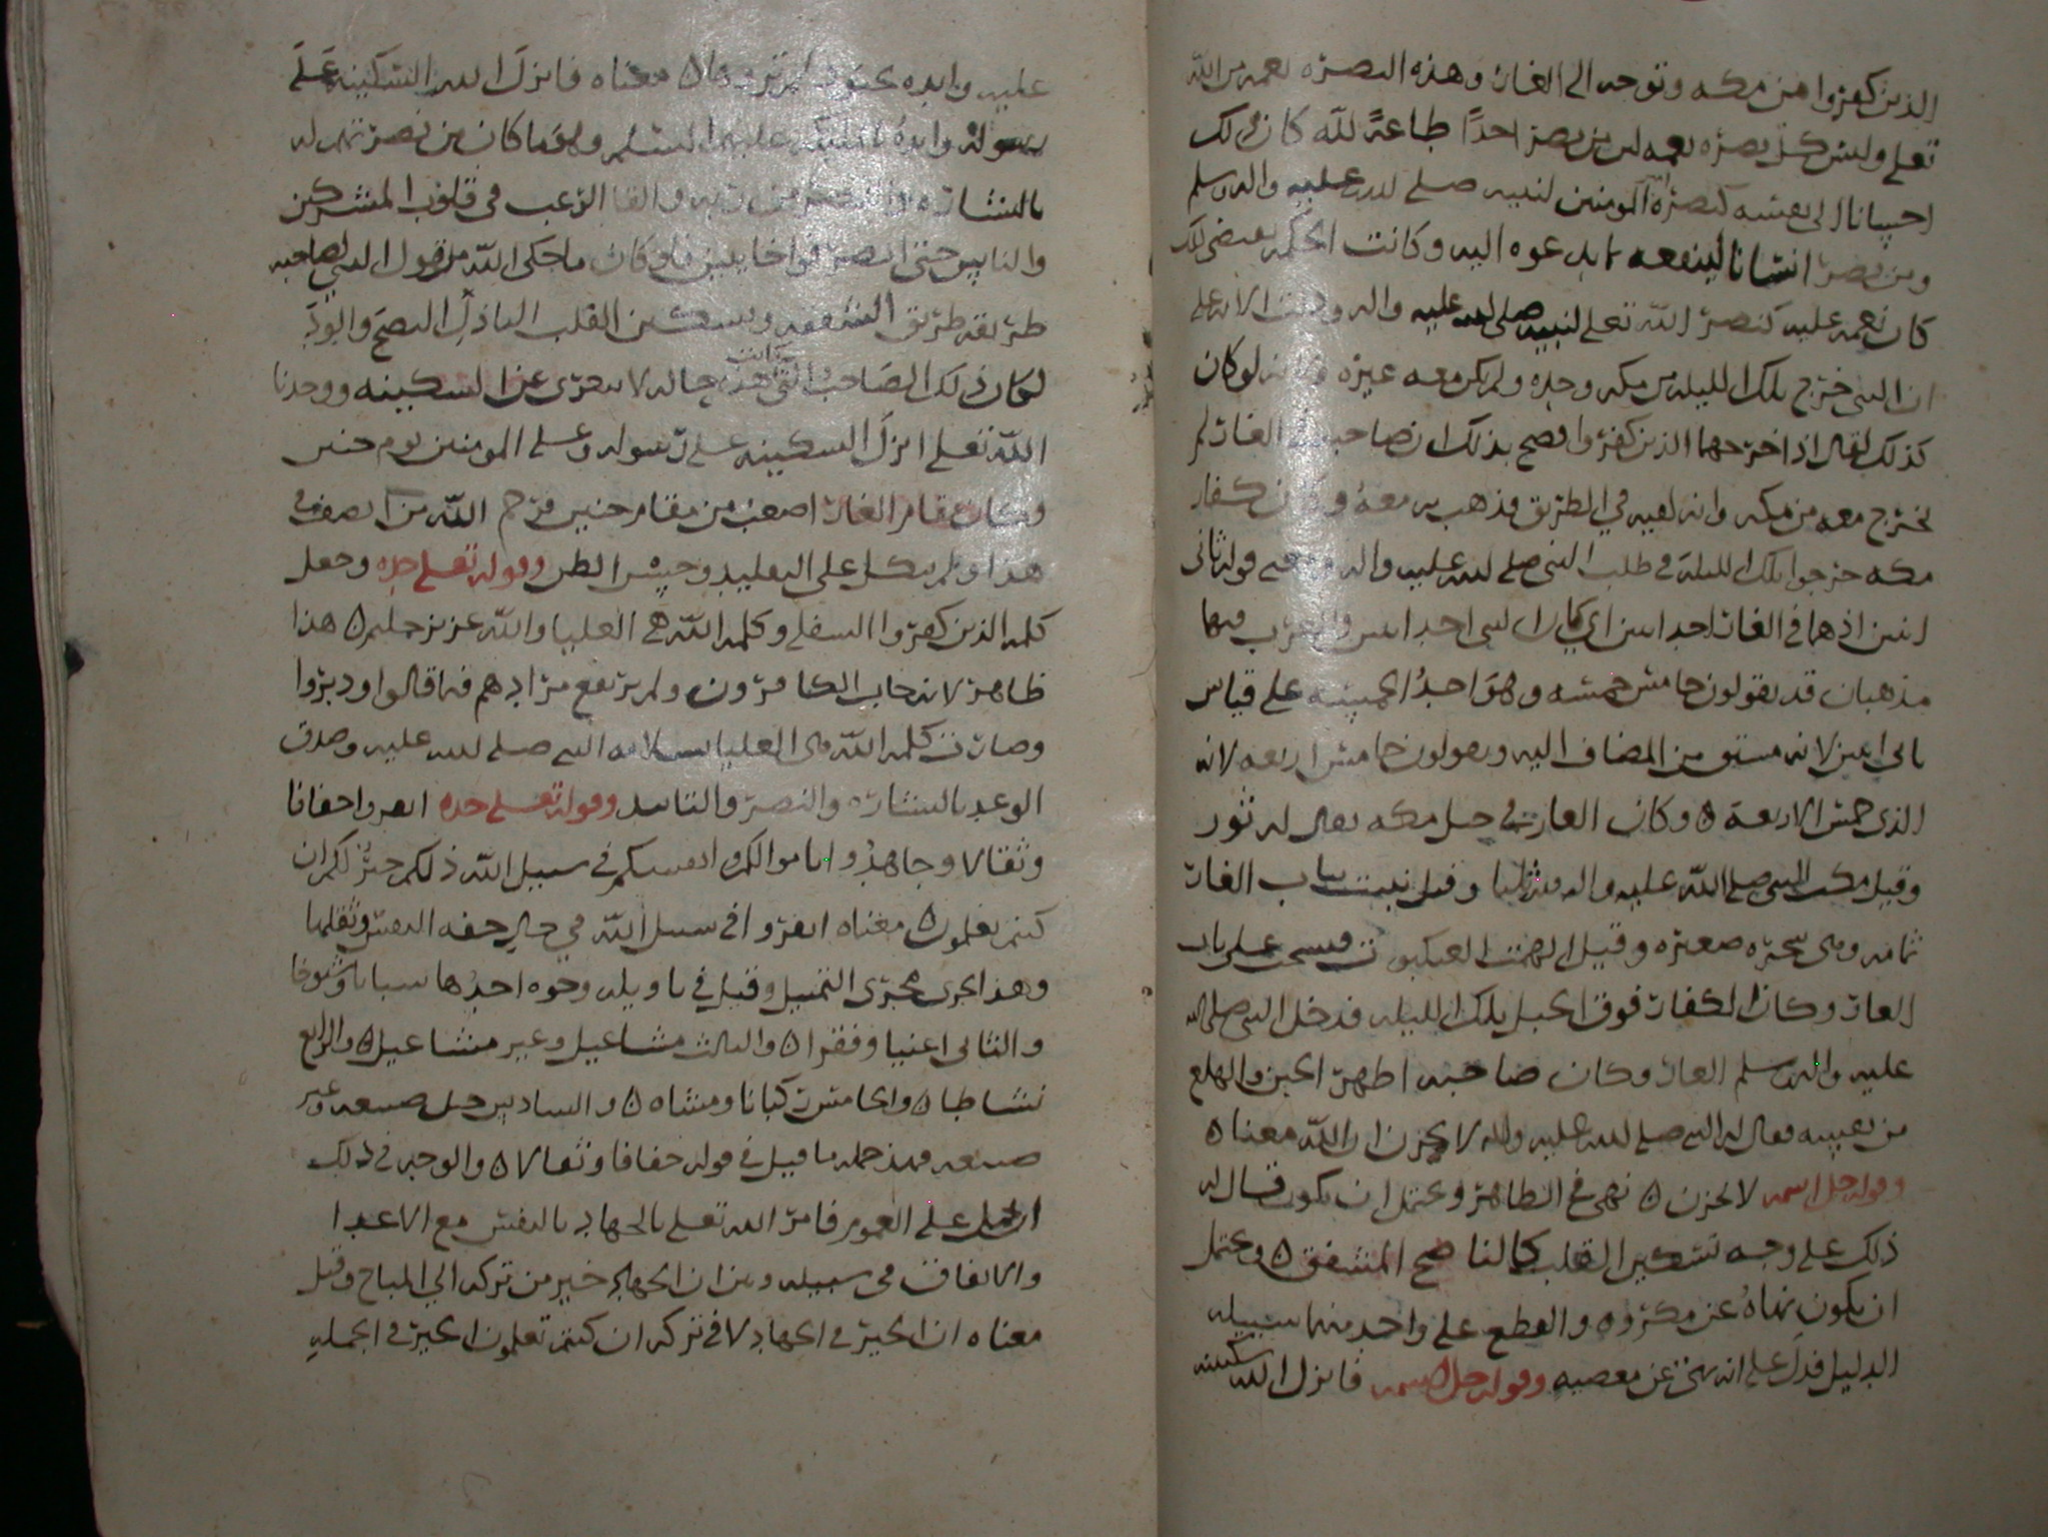 الذين كفروا من مكه وتوجه الى الغار وهذه النصره نعمه من الله
تعلى وليس كل نصره نعمه لان من نصر احدا طاعة لله كان ذلك
احسانا الى نفسه كنصرة المومنين لنبيه صلى الله عليه واله وسلم
ومن نصر انسانا لينفعه بما يدعوه اليه وكانت الحكمه يقتضى ذلك
كان نعمه عليه كنصر الله تعلى لنبيه صلى الله عليه واله ودلت الايه على
ان النبي خرج تلك الليله من مكه وحده ولم يكن معه غيره لانه لو كان
كذلك لقال اذ اخرجهما الذين كفروا فصح بذلك ان صاحبه في الغار لم
يخرج معه من مكه وانه لقيه في الطريق فذهب به معه وكان كفار
مكه خرجوا تلك الليله في طلب النبي صلى الله عليه واله ومعنى قوله ثانى
اثنين اذ هما في الغار احد اثنين اي كان النبي احد اثنين وللعرب فيها
مذهبان قد يقولون خامس خمسه وهو احد الخمسه على قياس
ثانى اثنين لانه مشتق من المضاف اليه ويقولون خامس اربعه لانه
الذى خمس الاربعة ه وكان الغار في جبل مكه يقال له ثور
وقيل مكث النبي صلى الله عليه واله فيه ثلثا وقيل نبتت بباب الغار
ثمامه وهى شجره صغيره وقيل الهمت العنكبوت فنسجت على باب
الغار وكان الكفار فوق الجبل تلك الليله فدخل النبي صلى الله
عليه واله وسلم الغار وكان صاحبه اظهر الحزن والهلع
من نفسه فقال له النبي صلى الله عليه واله لا تحزن ان الله معنا ه
وقوله جل اسمه لا تحزن ه نهى في الظاهر ويحتمل ان يكون قال له
ذلك على وجه تسكين القلب كالناصح المشفق ه ويحتمل
ان يكون نهاه عن مكروه والقطع على واحد منهما سبيله
الدليل فدل على انه نهى عن معصيه وقوله جل اسمه فانزل الله سكينته
عليه وايده بجنود لم تروها ه معناه فانزل الله السكينه على
رسوله وايده بالمليكه عليهم السلم وهو ما كان من نصرتهم له
بالبشاره والقا الرعب في قلوب المشركين
والناس حتى انصرفوا خايبين فلو كان ما حكى الله من قول النبي لصاحبه
طريقه طريق الشفقه وتسكين القلب الباذل النصح والود
لكان ذلك الصاحب التى كانت هذه حاله لا يتعرى عن السكينه ووجدنا
الله تعلى انزل السكينه على رسوله وعلى المومنين يوم حنين
وكان مقام الغار اصعب من مقام حنين فرحم الله من انصف في
هذا ولم يتكل على التقليد وحسن الظن وقوله تعلى جده وجعل
كلمه الذين كفروا السفلى وكلمه الله هى العليا والله عزيز حكيم ه هذا
ظاهر لانه خاب الكافرون ولم يرتفع مرادهم فيما قالوا ودبروا
وصارت كلمه الله هى العليا بسلامه النبي صلى الله عليه وصدق
الوعد بالبشاره والنصر والتاييد وقوله تعلى جده انفروا خفافا
وثقالا وجاهدوا باموالكم وانفسكم في سبيل الله ذلكم خير لكم ان
كنتم تعلمون ه معناه انفروا في سبيل الله في حال خفه النفس وثقلها
وهذا يجرى مجرى التمثيل وقيل في تاويله وجوه احدها شبابا وشيوخا
والثانى اغنيا وفقرا ه والثالث مشاغيل وغير مشاغيل ه والرابع
نشاطا ه والخامس ركبانا ومشاه ه والسادس ضيعه وغير
ضيعه فهذه جمله ما قيل في قوله خفافا وثقالا ه والوجه في ذلك
ان يحمل على العموم فامر الله تعلى بالجهاد بالنفس مع الاعدا
والانفاق في سبيله وبين ان الجهاد خير من تركه الى المباح وقيل
معناه ان الخير في الجهاد لا في تركه ان كنتم تعلمون الخير في الجمله